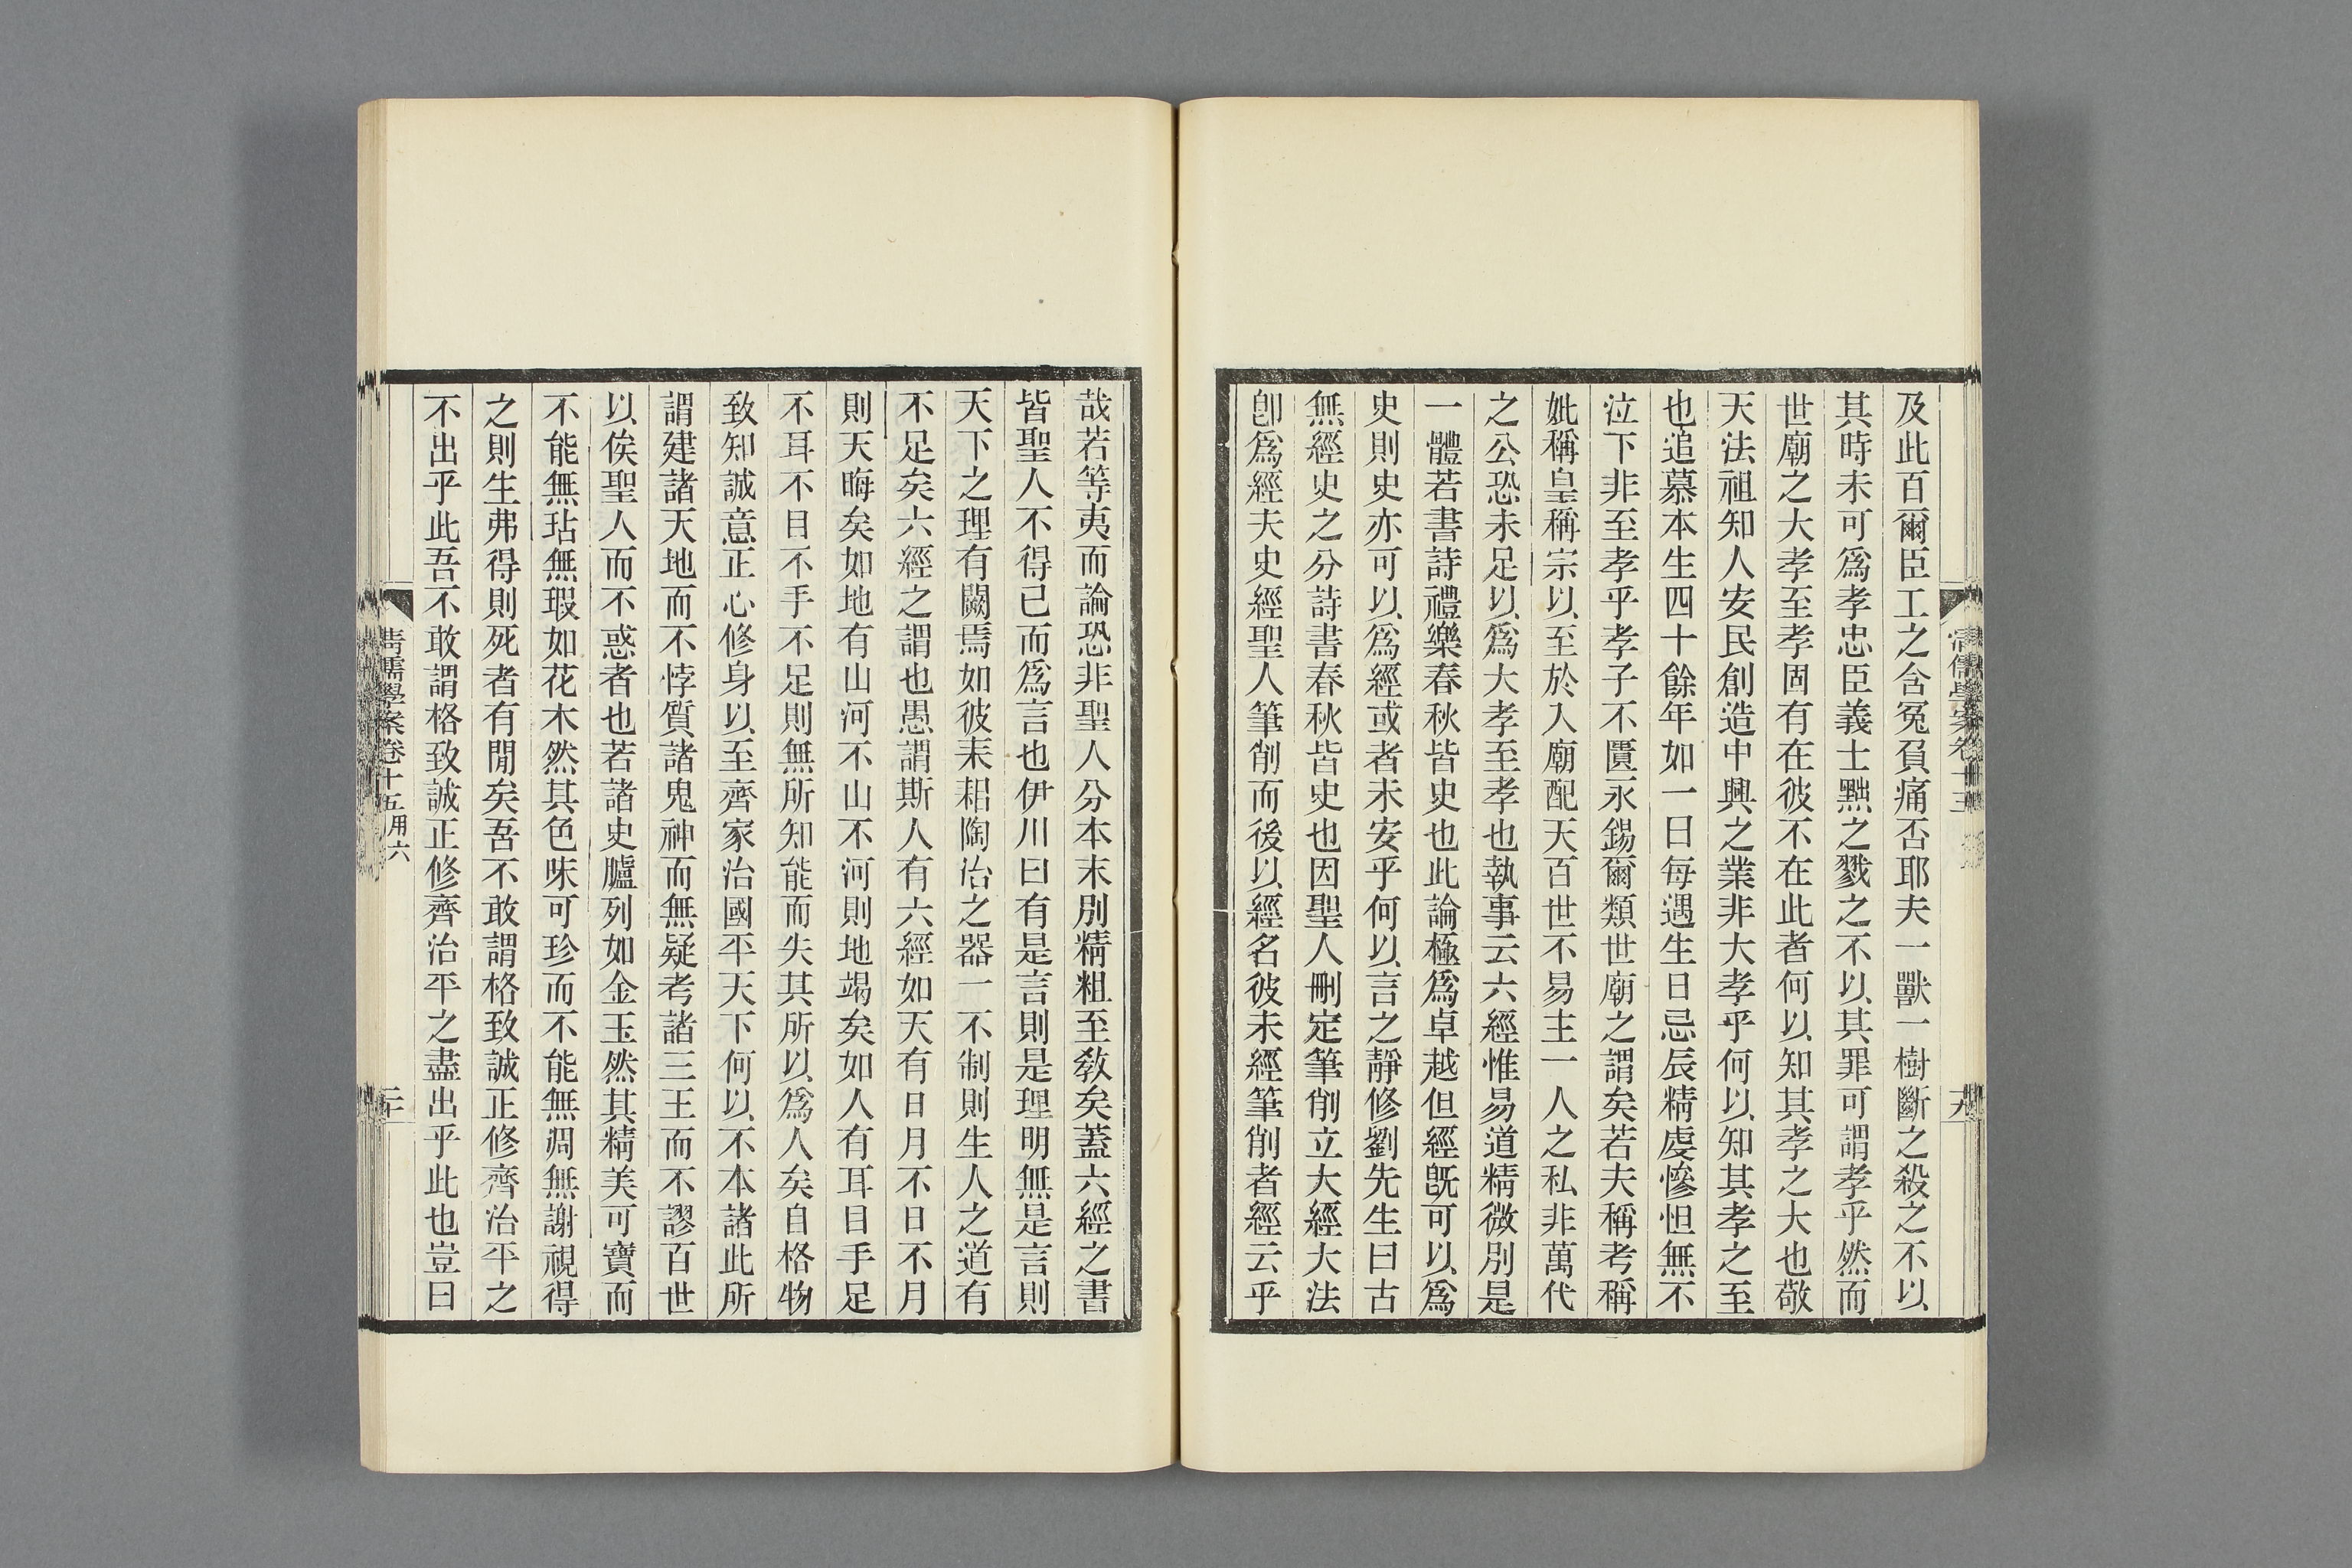 及此百爾臣工之含冤負痛否耶夫一獸一樹斷之殺之不以
其時未可爲孝忠臣義士黜之戮之不以其罪可謂孝乎然而
世廟之大孝至孝固有在彼不在此者何以知其孝之大也敬
天法祖知人安民創造中興之業非大孝乎何以知其孝之至
也追慕本生四十餘年如一日每遇生日忌辰精虔慘怛無不
泣下非至孝乎孝子不匱永錫爾類世廟之謂矣若夫稱考稱
妣稱皇稱宗以至於入廟配天百世不易主一人之私非萬代
之公恐未足以爲大孝至孝也執事云六經惟易道精微別是
一體若書詩禮樂春秋皆史也此論極爲卓越但經旣可以爲
史則史亦可以爲經或者未安乎何以言之靜修劉先生曰古
無經史之分詩書春秋皆史也因聖人刪定筆削立大經大法
卽爲經夫史經聖人筆削而後以經名彼未經筆削者經云乎
哉若等夷而論恐非聖人分本末別精粗至敎矣蓋六經之書
皆聖人不得已而爲言也伊川曰有是言則是理明無是言則
天下之理有闕焉如彼耒耜陶冶之器一不制則生人之道有
不足矣六經之謂也愚謂斯人有六經如天有日月不日不月
則天晦矣如地有山河不山不河則地竭矣如人有耳目手足
不耳不目不手不足則無所知能而失其所以爲人矣自格物
致知誠意正心修身以至齊家治國平天下何以不本諸此所
謂建諸天地而不悖質諸鬼神而無疑考諸三王而不謬百世
以俟聖人而不惑者也若諸史臚列如金玉然其精美可寶而
不能無玷無瑕如花木然其色味可珍而不能無凋無謝視得
之則生弗得則死者有閒矣吾不敢謂格致誠正修齊治平之
不出乎此吾不敢謂格致誠正修齊治平之盡出乎此也豈曰
清儒學案卷十五 用六
二十